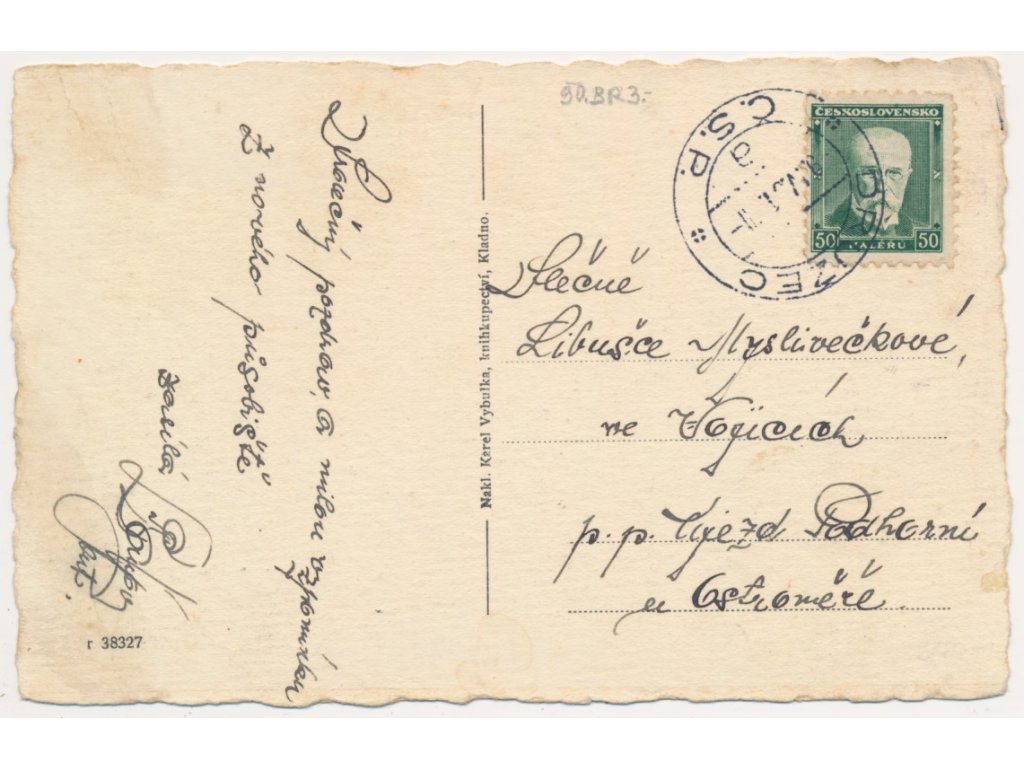 90.BR3.-
ČESKOSLOVENSKO
50 HALÉRŮ 50
Č.S.P.
a
Srdečný pozdrav, a milou vzpomínku
Z nového působiště
zasílá
Nakl. Karel Vybulka, knihkupectví, Kladno.
Slečně
Libušce Myslivečkové,
ve Vojicích
p. p. Újezd Podhorní
u Ostroměře.
r 38327